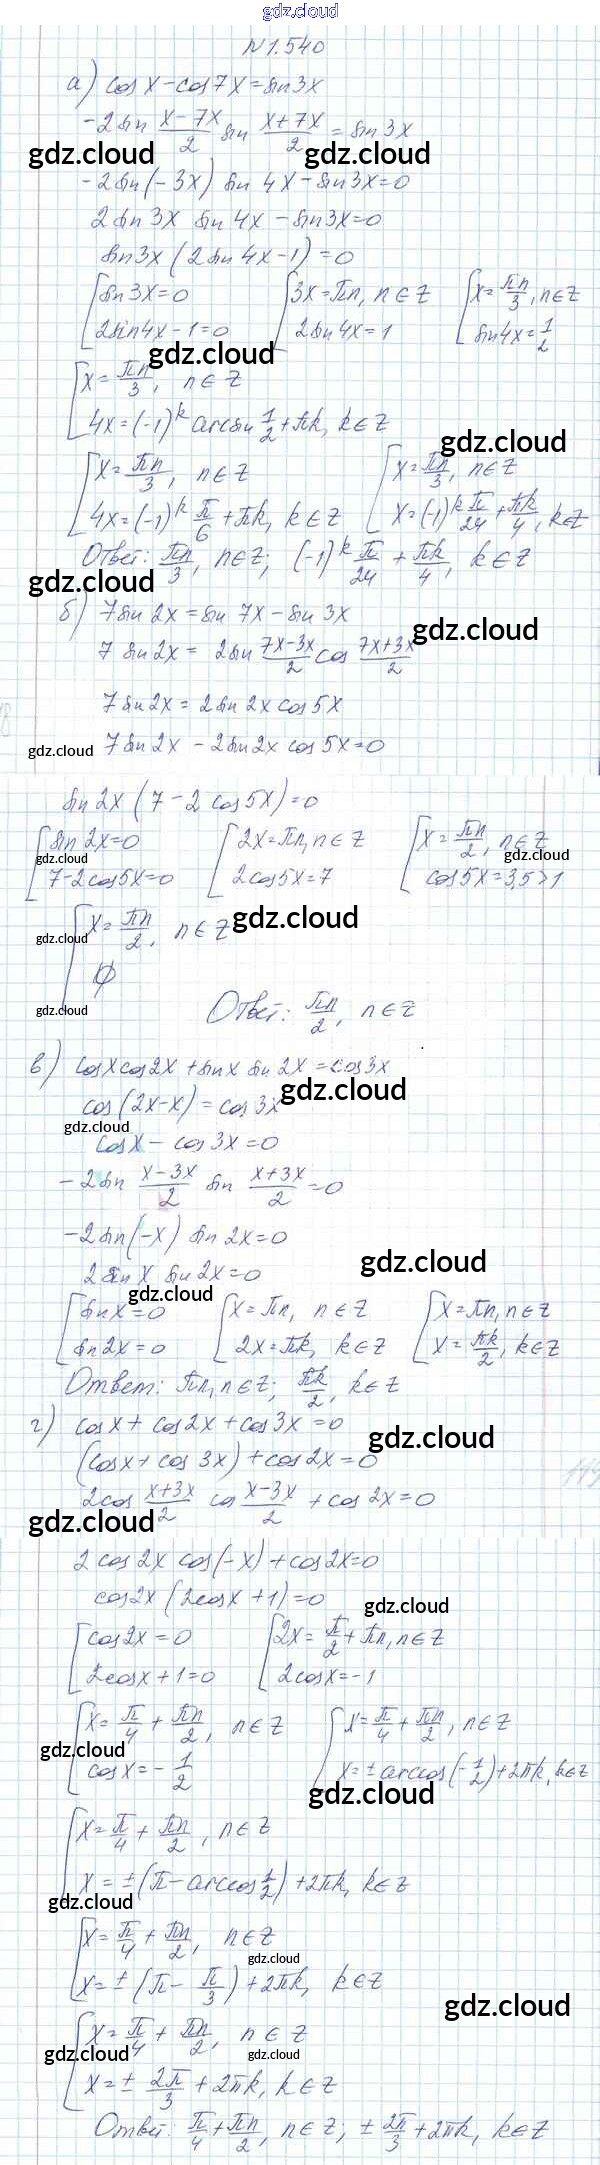 gdz.cloud
№1.540
а) cos x − cos 7x = sin 3x
−2 sin (x−7x)/2 sin (x+7x)/2 = sin 3x
gdz.cloud gdz.cloud
−2 sin(−3x) sin 4x − sin 3x = 0
2 sin 3x sin 4x − sin 3x = 0
sin 3x (2 sin 4x − 1) = 0
[ sin 3x = 0 [ 3x = πn, n ∈ Z [ x = πn/3, n ∈ Z
2 sin 4x − 1 = 0 2 sin 4x = 1 sin 4x = 1/2
gdz.cloud
[ x = πn/3, n ∈ Z
4x = (−1)^k arcsin 1/2 + πk, k ∈ Z
gdz.cloud
[ x = πn/3, n ∈ Z [ x = πn/3, n ∈ Z
4x = (−1)^k π/6 + πk, k ∈ Z x = (−1)^k π/24 + πk/4, k ∈ Z
Ответ: πn/3, n ∈ Z; (−1)^k π/24 + πk/4, k ∈ Z
gdz.cloud
б) 7 sin 2x = sin 7x − sin 3x
gdz.cloud
7 sin 2x = 2 sin (7x−3x)/2 cos (7x+3x)/2
7 sin 2x = 2 sin 2x cos 5x
gdz.cloud
7 sin 2x − 2 sin 2x cos 5x = 0
sin 2x (7 − 2 cos 5x) = 0
[ sin 2x = 0 [ 2x = πn, n ∈ Z [ x = πn/2, n ∈ Z
gdz.cloud gdz.cloud
7 − 2 cos 5x = 0 2 cos 5x = 7 cos 5x = 3,5 > 1
[ x = πn/2, n ∈ Z
gdz.cloud gdz.cloud
∅
gdz.cloud
Ответ: πn/2, n ∈ Z
в) cos x cos 2x + sin x sin 2x = cos 3x
gdz.cloud
cos (2x − x) = cos 3x
gdz.cloud
cos x − cos 3x = 0
−2 sin (x−3x)/2 sin (x+3x)/2 = 0
−2 sin(−x) sin 2x = 0
gdz.cloud
2 sin x sin 2x = 0
gdz.cloud
[ sin x = 0 [ x = πn, n ∈ Z [ x = πn, n ∈ Z
sin 2x = 0 2x = πk, k ∈ Z x = πk/2, k ∈ Z
Ответ: πn, n ∈ Z; πk/2, k ∈ Z
г) cos x + cos 2x + cos 3x = 0
gdz.cloud
(cos x + cos 3x) + cos 2x = 0
2 cos (x+3x)/2 cos (x−3x)/2 + cos 2x = 0
gdz.cloud
2 cos 2x cos(−x) + cos 2x = 0
cos 2x (2 cos x + 1) = 0
gdz.cloud
[ cos 2x = 0 [ 2x = π/2 + πn, n ∈ Z
2 cos x + 1 = 0 2 cos x = −1
[ x = π/4 + πn/2, n ∈ Z [ x = π/4 + πn/2, n ∈ Z
gdz.cloud
cos x = −1/2 x = ± arccos(−1/2) + 2πk, k ∈ Z
gdz.cloud
[ x = π/4 + πn/2, n ∈ Z
x = ± (π − arccos 1/2) + 2πk, k ∈ Z
gdz.cloud
[ x = π/4 + πn/2, n ∈ Z
gdz.cloud
x = ± (π − π/3) + 2πk, k ∈ Z
gdz.cloud
[ x = π/4 + πn/2, n ∈ Z
gdz.cloud gdz.cloud
x = ± 2π/3 + 2πk, k ∈ Z
Ответ: π/4 + πn/2, n ∈ Z; ± 2π/3 + 2πk, k ∈ Z